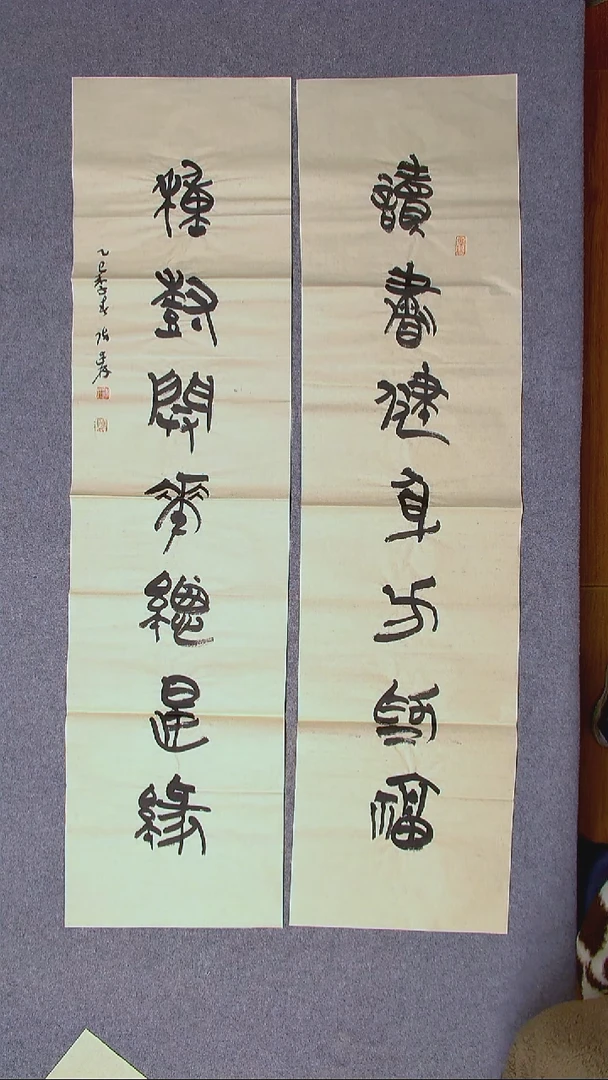 讀書健身方為福
種樹開花總是緣
乙巳季春